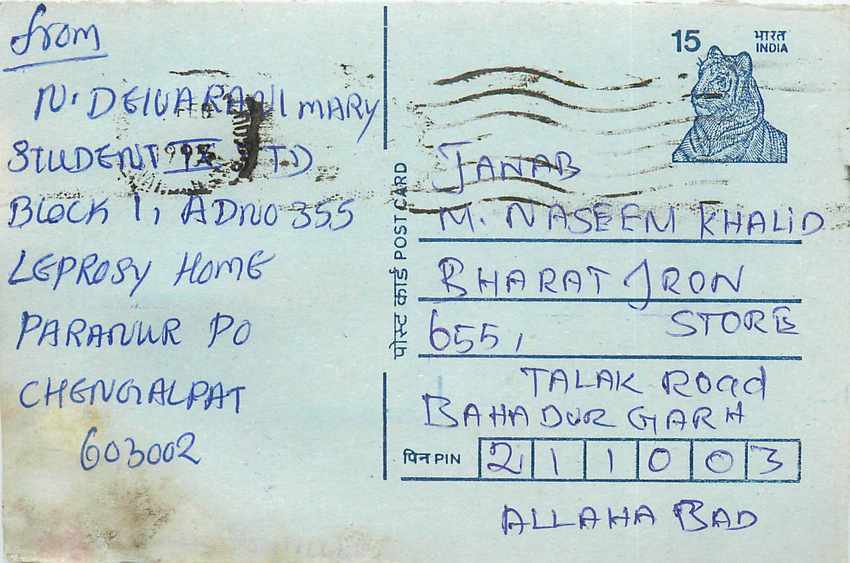 from
N. DEIVARANI MARY
STUDENT IX STD
BLOCK 1, ADNO 355
LEPROSY HOME
PARANUR PO
CHENGALPAT
603002
पोस्ट कार्ड POST CARD
15 भारत
INDIA
JANAB
M. NASEEM KHALID
BHARAT IRON
655, STORE
TALAK ROAD
BAHADUR GARH
पिन PIN 211003
ALLAHA BAD